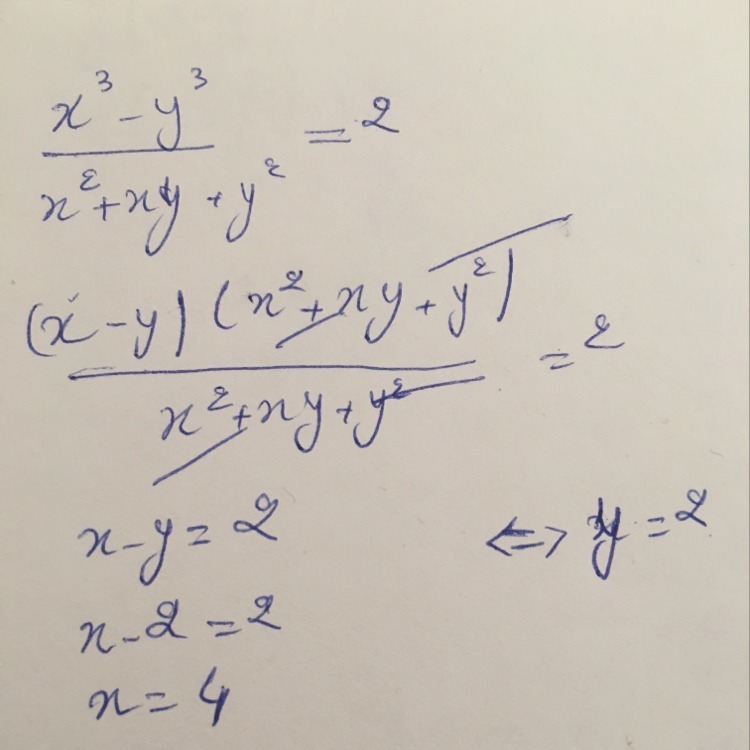 x³ - y³ / x² + xy + y² = 2
(x - y) (x² + xy + y²) / x² + xy + y² = 2
x - y = 2 <=> y = 2
x - 2 = 2
x = 4